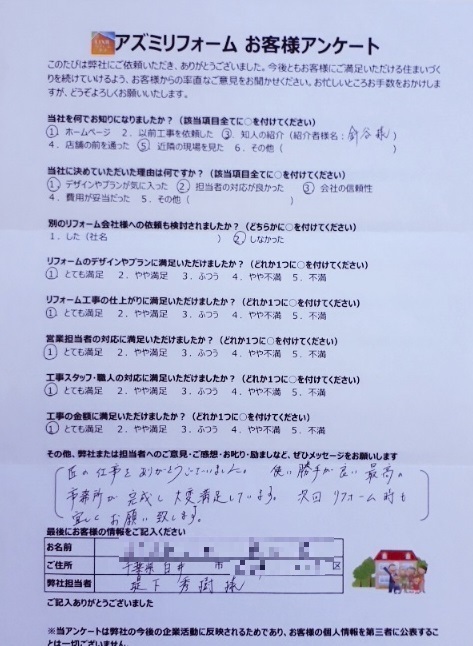 アズミリフォーム お客様アンケート
このたびは弊社にご依頼いただき、ありがとうございました。今後ともお客様にご満足いただける住まいづく
りを続けていけるよう、お客様からの率直なご意見をお聞かせください。お忙しいところお手数をおかけしま
すが、どうぞよろしくお願いいたします。
当社を何でお知りになりましたか？（該当項目全てに○を付けてください）
① ホームページ 2. 以前工事を依頼した ③ 知人の紹介（紹介者様名： 様 ）
4. 店舗の前を通った ⑤ 近隣の現場を見た 6. その他（ ）
当社に決めていただいた理由は何ですか？（該当項目全てに○を付けてください）
① デザインやプランが気に入った ② 担当者の対応が良かった ③ 会社の信頼性
4. 費用が妥当だった 5. その他（ ）
別のリフォーム会社様への依頼も検討されましたか？（どちらかに○を付けてください）
1. した（社名 ） ② しなかった
リフォームのデザインやプランに満足いただけましたか？（どれか1つに○を付けてください）
① とても満足 2. やや満足 3. ふつう 4. やや不満 5. 不満
リフォーム工事の仕上がりに満足いただけましたか？（どれか1つに○を付けてください）
① とても満足 2. やや満足 3. ふつう 4. やや不満 5. 不満
営業担当者の対応に満足いただけましたか？（どれか1つに○を付けてください）
① とても満足 2. やや満足 3. ふつう 4. やや不満 5. 不満
工事スタッフ・職人の対応に満足いただけましたか？（どれか1つに○を付けてください）
① とても満足 2. やや満足 3. ふつう 4. やや不満 5. 不満
工事の金額に満足いただけましたか？（どれか1つに○を付けてください）
① とても満足 2. やや満足 3. ふつう 4. やや不満 5. 不満
その他、弊社または担当者へのご意見・ご感想・お叱り・励ましなど、ぜひメッセージをお願いします
匠の仕事をありがとうございました。 使い勝手が良い最高の
事務所が完成し大変満足しています。 次回リフォーム時も
宜しくお願い致します。
最後にお客様の情報をご記入ください
お名前
ご住所 千葉県白井 市 区
弊社担当者 堤下 秀樹 様
ご記入ありがとうございました
※当アンケートは弊社の今後の企業活動に反映されるためであり、お客様の個人情報を第三者に公表するこ
とは一切ございません。